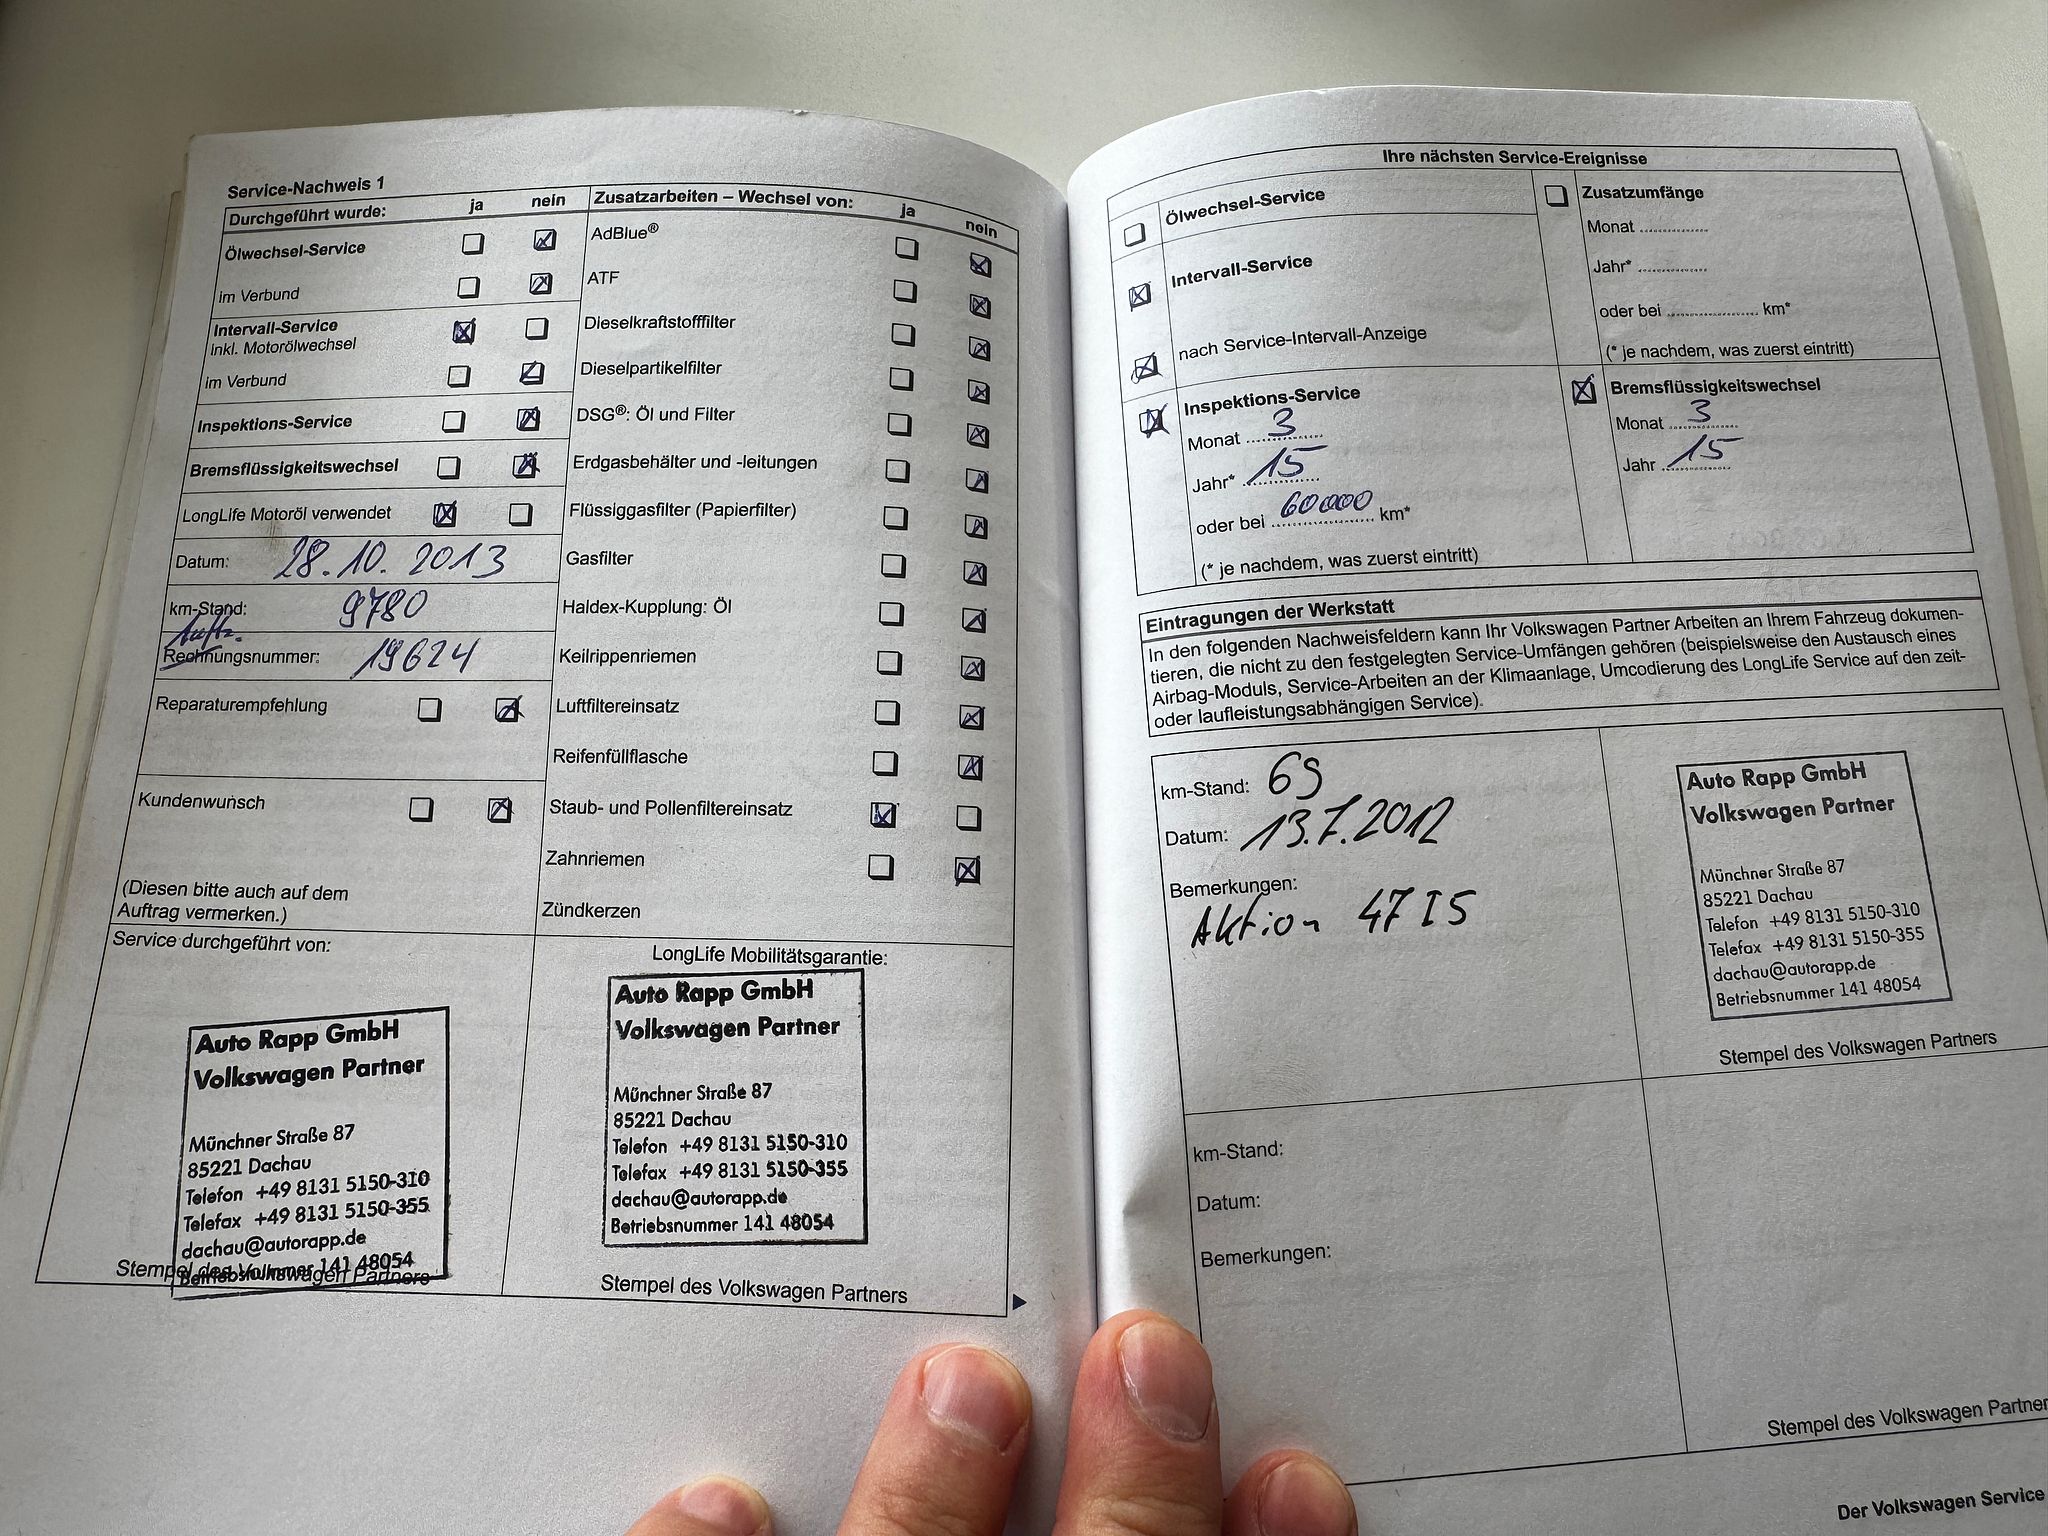 Service-Nachweis 1
Durchgeführt wurde: ja nein
Ölwechsel-Service
im Verbund
Intervall-Service
inkl. Motorölwechsel
im Verbund
Inspektions-Service
Bremsflüssigkeitswechsel
LongLife Motoröl verwendet
Datum: 28.10.2013
km-Stand: 9780
Auftr.
Rechnungsnummer: 19624
Reparaturempfehlung
Kundenwunsch
(Diesen bitte auch auf dem
Auftrag vermerken.)
Zusatzarbeiten – Wechsel von: ja nein
AdBlue®
ATF
Dieselkraftstofffilter
Dieselpartikelfilter
DSG®: Öl und Filter
Erdgasbehälter und -leitungen
Flüssiggasfilter (Papierfilter)
Gasfilter
Haldex-Kupplung: Öl
Keilrippenriemen
Luftfiltereinsatz
Reifenfüllflasche
Staub- und Pollenfiltereinsatz
Zahnriemen
Zündkerzen
Service durchgeführt von:
Auto Rapp GmbH
Volkswagen Partner
Münchner Straße 87
85221 Dachau
Telefon +49 8131 5150-310
Telefax +49 8131 5150-355
dachau@autorapp.de
Betriebsnummer 141 48054
Stempel des Volkswagen Partners
LongLife Mobilitätsgarantie:
Auto Rapp GmbH
Volkswagen Partner
Münchner Straße 87
85221 Dachau
Telefon +49 8131 5150-310
Telefax +49 8131 5150-355
dachau@autorapp.de
Betriebsnummer 141 48054
Stempel des Volkswagen Partners
Ihre nächsten Service-Ereignisse
Ölwechsel-Service
Intervall-Service
nach Service-Intervall-Anzeige
Inspektions-Service
Monat 3
Jahr* 15
oder bei 60000 km*
(* je nachdem, was zuerst eintritt)
Zusatzumfänge
Monat
Jahr*
oder bei km*
(* je nachdem, was zuerst eintritt)
Bremsflüssigkeitswechsel
Monat 3
Jahr 15
Eintragungen der Werkstatt
In den folgenden Nachweisfeldern kann Ihr Volkswagen Partner Arbeiten an Ihrem Fahrzeug dokumen-
tieren, die nicht zu den festgelegten Service-Umfängen gehören (beispielsweise den Austausch eines
Airbag-Moduls, Service-Arbeiten an der Klimaanlage, Umcodierung des LongLife Service auf den zeit-
oder laufleistungsabhängigen Service).
km-Stand: 69
Datum: 13.7.2012
Bemerkungen:
Aktion 47I5
Auto Rapp GmbH
Volkswagen Partner
Münchner Straße 87
85221 Dachau
Telefon +49 8131 5150-310
Telefax +49 8131 5150-355
dachau@autorapp.de
Betriebsnummer 141 48054
Stempel des Volkswagen Partners
km-Stand:
Datum:
Bemerkungen:
Stempel des Volkswagen Partner
Der Volkswagen Service